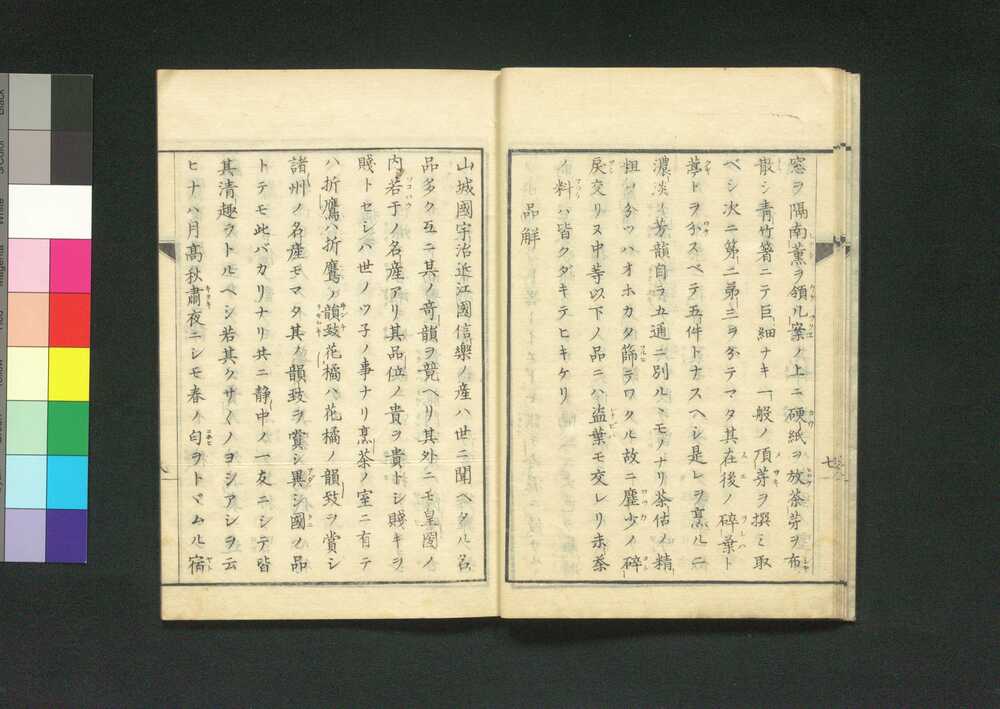 窓ヲ隔南薫ヲ領ル案ノ上ニ硬紙ヲ放茶芽ヲ布
散シ青竹箸ニテ巨細ナキ一般ノ頂芽ヲ撰ミ取
ベシ次ニ第二第三ヲ分テマタ其在後ノ碎葉ト
莖トヲ分スベテ五件トナスヘシ是レヲ烹ルニ
濃淡ノ芳韻自ラ五通ニ別ルヽモノナリ茶估ノ精
粗ヲ分ツハオホカタ篩テワクル故ニ塵少ノ碎
戻交リヌ中等以下ノ品ニハ盗葉モ交レリ末茶
ノ料ハ皆クダキテヒキケリ
品解
山城國宇治近江國信樂ノ産ハ世ニ聞ヘタル名
品多ク互ニ其ノ奇韻ヲ競ヘリ其外ニモ皇國ノ
内若于ノ名産アリ其品位ノ貴ヲ貴トシ賤キヲ
賤トセシハ世ノツ子ノ事ナリ烹茶ノ室ニ有テ
ハ折鷹ハ折鷹ノ韻致花橘ハ花橘ノ韻致ヲ賞シ
諸州ノ名産モマタ其ノ韻致ヲ賞シ異シ國ノ品
トテモ此バカリナリ共ニ静中ノ一友ニシテ皆
其清趣ヲトルベシ若其クサ〲ノヨシアシヲ云
ヒナハ月高秋肅夜ニシモ春ノ匂ヲトヾムル宿
七